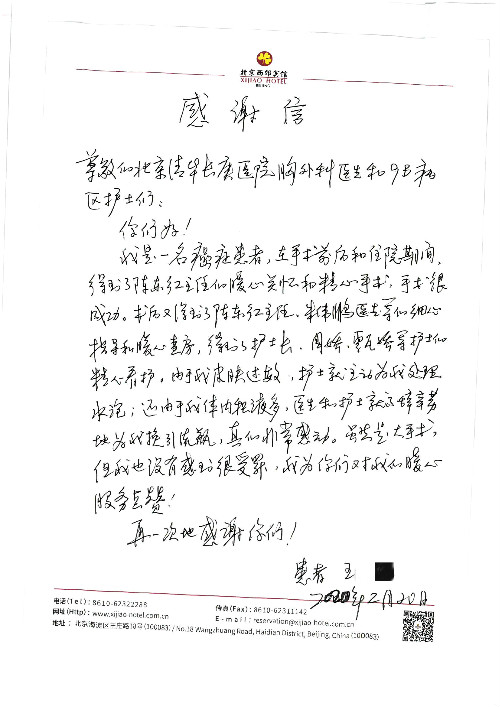 北京西郊宾馆
XIJIAO HOTEL
BEIJING
感谢信
尊敬的北京清华长庚医院胸外科医生和9古病
区护士们:
你们好!
我是一名癌症患者,在手术前后和住院期间,
得到了陈东红主任的暖心关怀和精心手术,手术很
成功。术后又得到了陈东红主任、朱伟鹏医生等的细心
指导和暖心查房,得到了护士长、周娇、甄娇等护士的
精心看护,由于我皮肤过敏,护士就主动为我处理
水泡;还由于我体内积液多,医生和护士就不辞辛劳
地为我换引流瓶,真的非常感动。虽然是大手术,
但我也没有感到很受罪,我为你们对我的暖心
服务点赞!
再一次地感谢你们!
患者 王
2020年2月20日
电话(Tel):8610-62322288
传真(Fax):8610-62311142
网址(Http):www.xijiao-hotel.com.cn
E-mail:reservation@xijiao-hotel.com.cn
地址:北京海淀区王庄路18号(100083)/No.18 Wangzhuang Road, Haidian District, Beijing, China (100083)